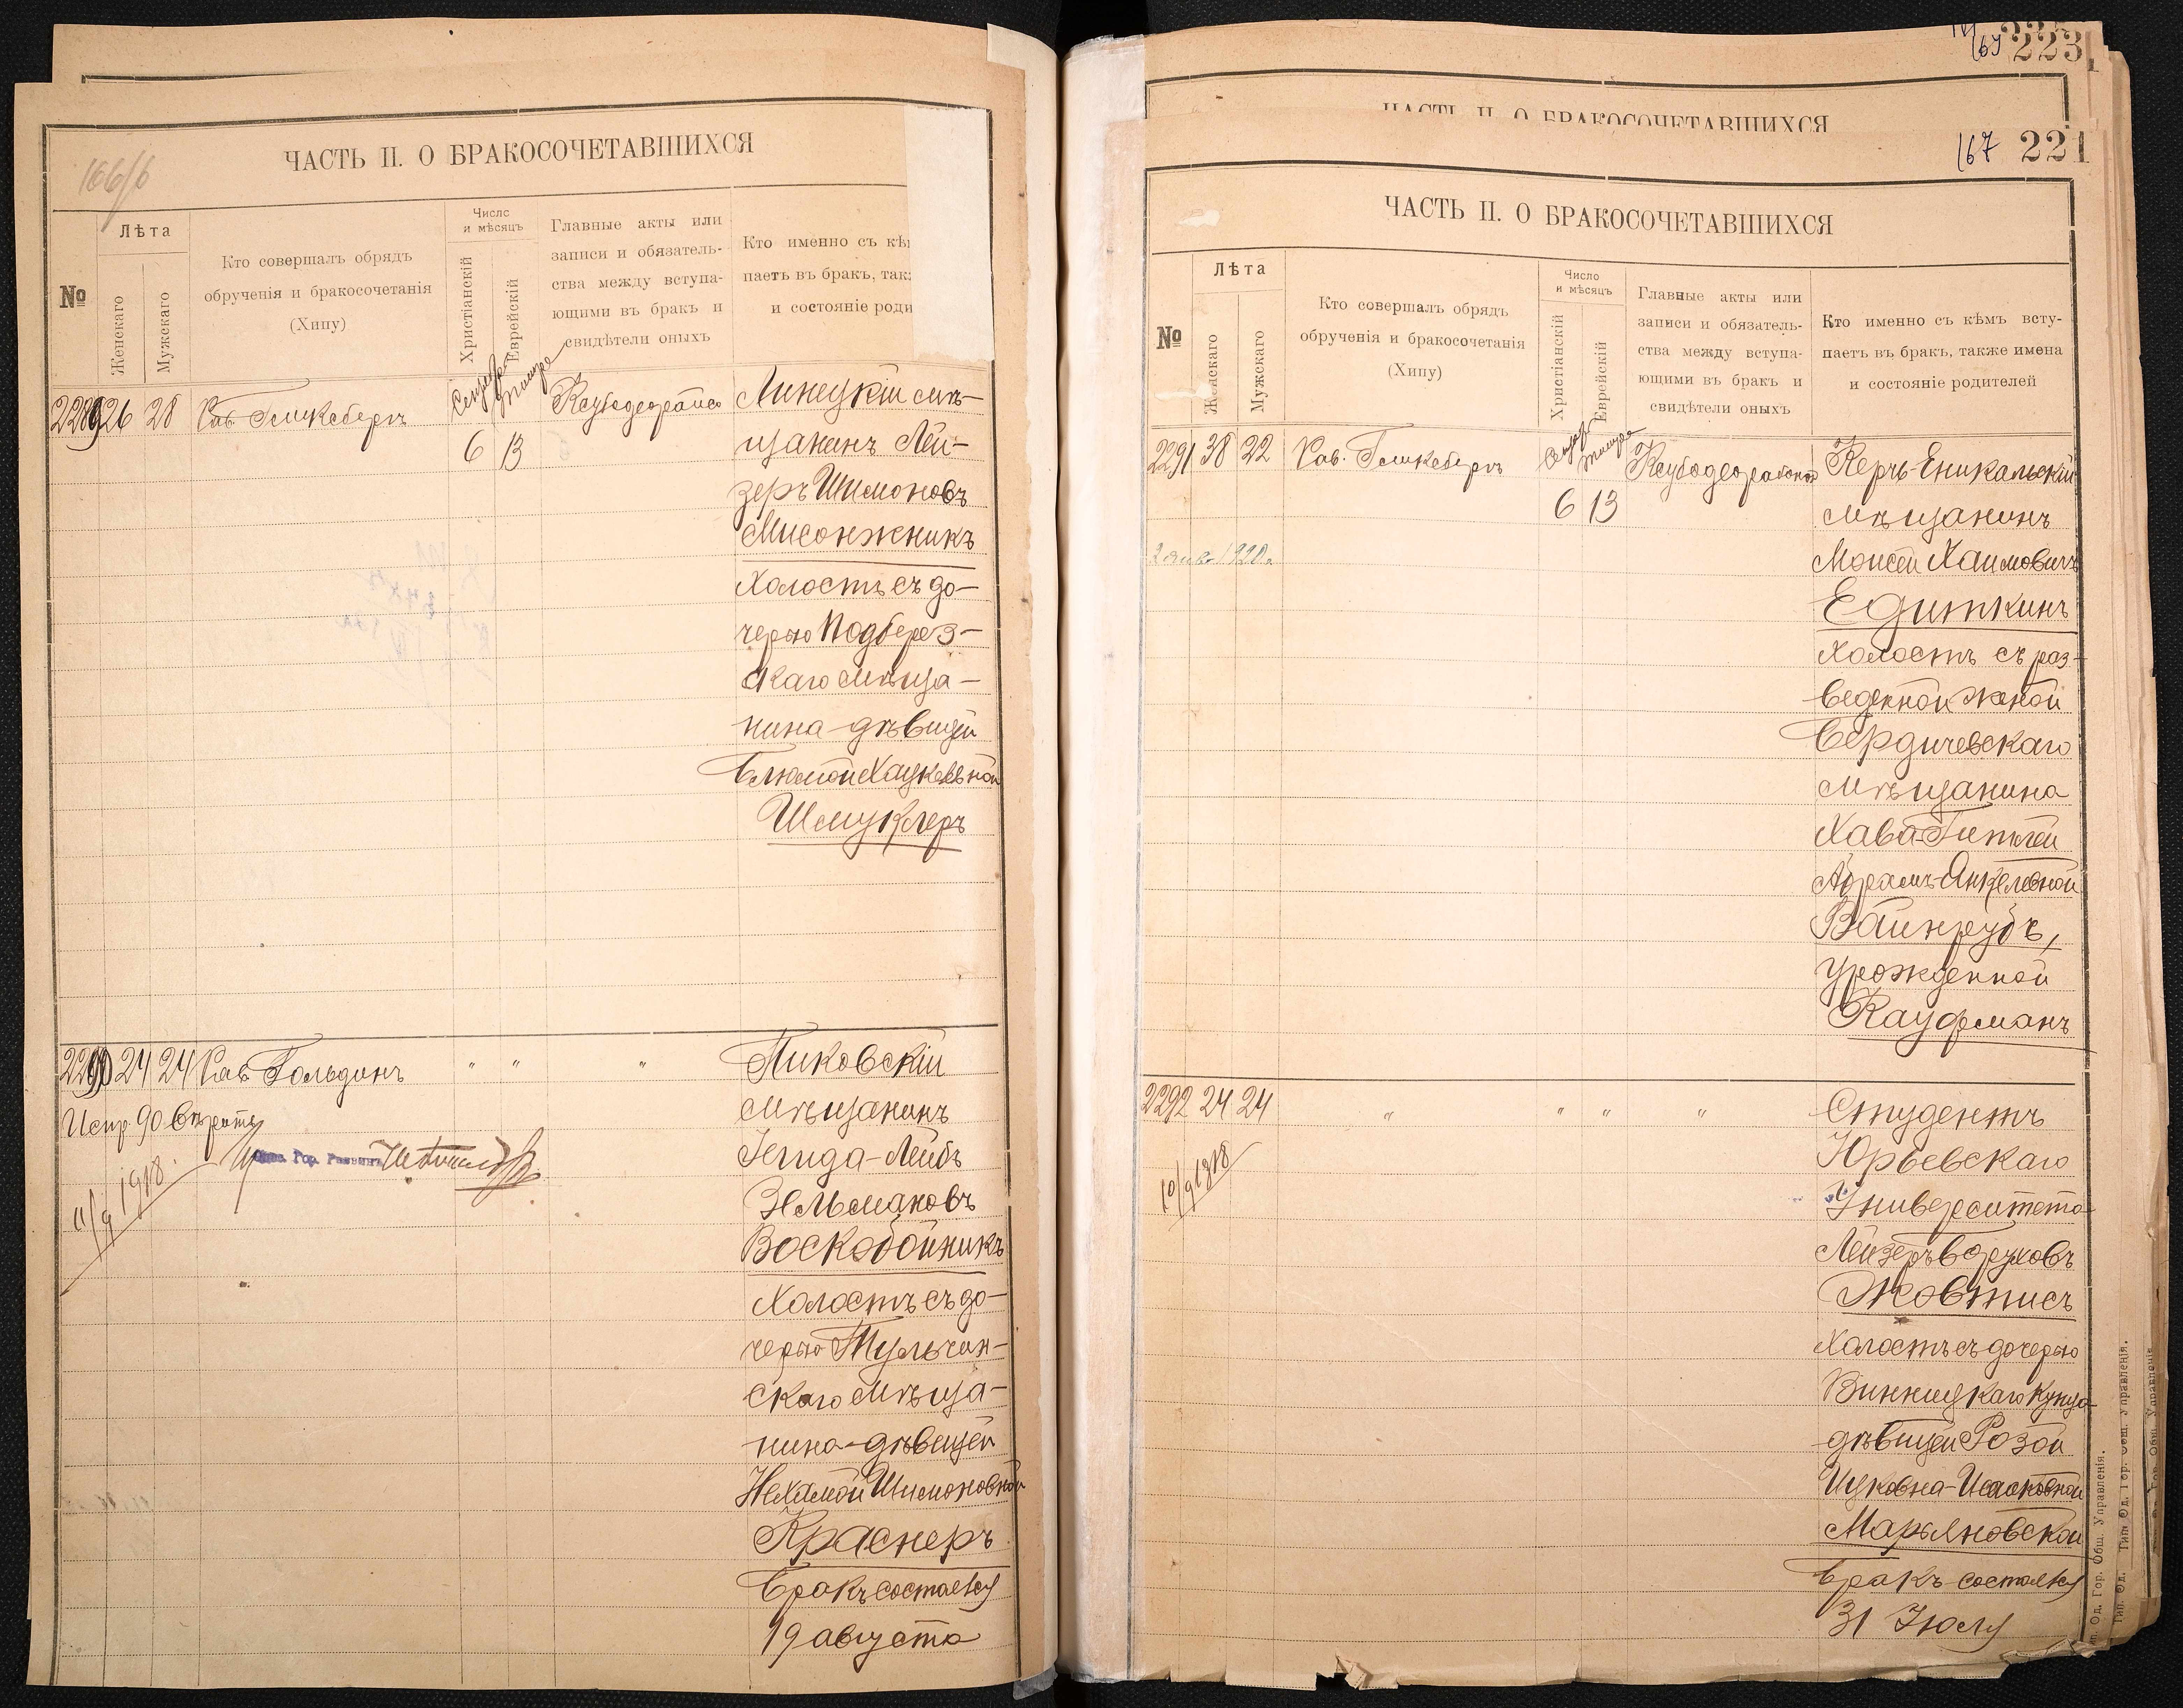 166/б
ЧАСТЬ II. О БРАКОСОЧЕТАВШИХСЯ
№
Лѣта
Женскаго
Мужскаго
Кто совершалъ обрядъ
обрученія и бракосочетанія
(Хипу)
Число
и мѣсяцъ
Христіанскій
Еврейскій
Главные акты или
записи и обязатель-
ства между вступа-
ющими въ бракъ и
свидѣтели оныхъ
Кто именно съ кѣ
паетъ въ брак, так
и состояніе роди
2289 26 28 Рав.
6 13
Линецкій мѣ-
щанинъ Лей-
зеръ Шимоновъ
Мисонжникъ
Холостъ съ до-
черью Подберез-
скаго мѣща-
нина-дѣвицей
Блюмой Хацкелевной
Шмуклеръ
2290 24 24 Рав. Гольдинъ " " "
Испр. 90 вѣрить
11/9 1918
Пиковскій
мѣщанинъ
Іегида-Лейбъ
Зельмановъ
Воскобойникъ
Холостъ съ до-
черью Тульчин-
скаго мѣща-
нина-дѣвицей
Нехамой Шимоновной
Краснеръ
Бракъ состоялся
19 августа
169 223
ЧАСТЬ II. О БРАКОСОЧЕТАВШИХСЯ
167 221
ЧАСТЬ II. О БРАКОСОЧЕТАВШИХСЯ
№
Лѣта
Женскаго
Мужскаго
Кто совершалъ обрядъ
обрученія и бракосочетанія
(Хипу)
Число
и мѣсяцъ
Христіанскій
Еврейскій
Главные акты или
записи и обязатель-
ства между вступа-
ющими въ бракъ и
свидѣтели оныхъ
Кто именно съ кѣмъ всту-
паетъ въ бракъ, также имена
и состояніе родителей
2291 38 22 Рав.
6 13
Керчь-Еникальскій
мѣщанинъ
Моисей Хаимовичъ
Едиткинъ
Холостъ съ раз-
веденной женой
Бердичевскаго
мѣщанина
Хава-Гитлей
Абрамъ-Янкелевной
Вайнрубъ,
урожденной
Кауфманъ
2292 24 24 " " " "
10/9 1918
Студентъ
Юрьевскаго
Университета
Лейзеръ Боруховъ
Жовтисъ
Холостъ съ дочерью
Винницкаго купца
дѣвицей Розой
Ицковна-Исааковной
Марьяновской
Бракъ состоялся
31 Іюля
Тип. Од. Гор. Общ. Управленія.
Тип. Од. Гор. Общ. Управленія.